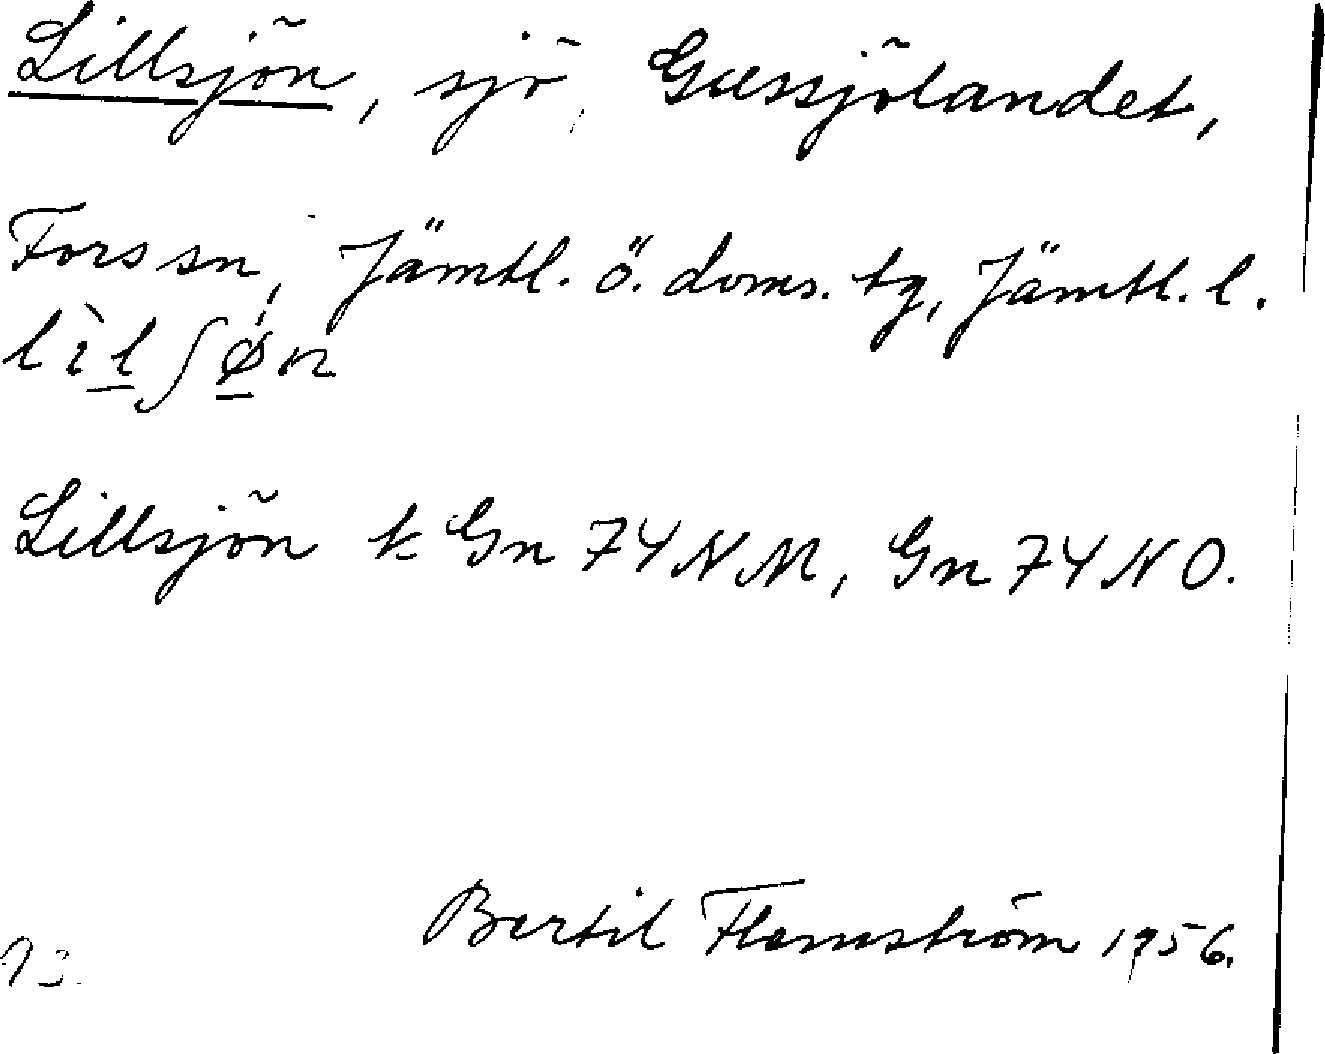 Lillsjön, sjö, Gussjölandet,
Fors sn, Jämtl. ö. doms. tg, Jämtl. l.
lìl ʃøn
Lillsjön k Gn 74 NM, Gn 74 NO.
Bertil Flemström 1956.